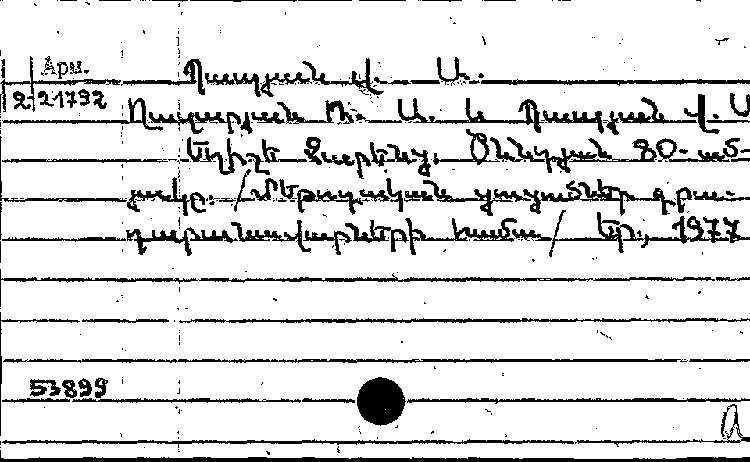 Арм.
2-21792
Պապյան Վ. Ա.
Ղազարյան Ռ. Ա. և Պապյան Վ. Ա
Եղիշե Չարենց. Ծննդյան 80-ամ-
յակը. / Մեթոդական ցուցումներ գրա-
դարանավարների համար / Եր., 1977
53899
a